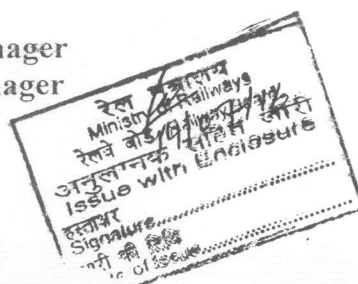 nager
nager
रेल मंत्रालय
Ministry of Railways
रेलवे बोर्ड/Railway
अनुलग्नक सहित जारी
Issue with Enclosure
हस्ताक्षर
Signature
की तिथि
of Issue